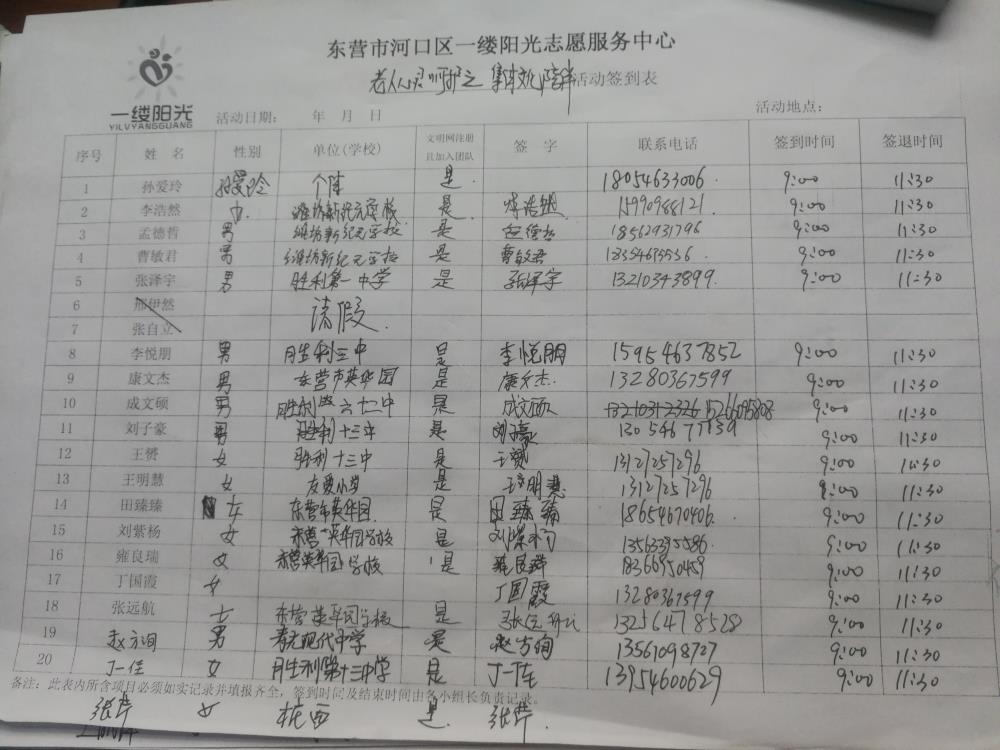 东营市河口区一缕阳光志愿服务中心
老人心灵呵护之 集体文化陪伴 活动签到表
一缕阳光
YILVYANGGUANG
活动日期： 年 月 日 活动地点：
序号 姓 名 性别 单位(学校) 文明网注册且加入团队 签 字 联系电话 签到时间 签退时间
1 孙爱玲 孙爱玲 个体 是 18054633006 9:00 11:30
2 李浩然 潍坊新纪元学校 是 李浩然 15990988121 9:00 11:30
3 孟德哲 男 潍坊新纪元学校 是 18562931796 9:00 11:30
4 曹敏君 男 潍坊新纪元学校 是 曹敏君 9:00 11:30
5 张泽宇 男 胜利第一中学 是 张泽宇 13210343899 9:00 11:30
6 邢伊然 请假
7 张自立
8 李悦朋 男 胜利三中 是 李悦朋 15954637852 9:00 11:30
9 康文杰 男 东营市英华园 是 康文杰 13280367599 9:00 11:30
10 成文硕 男 是 成文硕 9:00 11:30
11 刘子豪 男 胜利十三中 是 刘子豪 9:00 11:30
12 王赟 女 胜利十三中 是 王赟 13127257296 9:00 11:30
13 王明慧 女 友爱小学 是 王明慧 13127257296 9:00 11:30
14 田臻臻 女 东营市英华园 是 田臻臻 18654670406 9:00 11:30
15 刘紫杨 女 英华园学校 是 9:00 11:30
16 雍良瑞 女 东营英华园学校 是 雍良瑞 18366950459 9:00 11:30
17 丁国霞 女 丁国霞 13280367599 9:00 11:30
18 张远航 女 东营英华园学校 是 张远航 13256478528 9:00 11:30
19 赵方询 男 现代中学 是 赵方询 13561098727 9:00 11:30
20 丁一佳 女 胜利第十三中学 是 丁一佳 13954600629 9:00 11:30
备注：此表内所含项目必须如实记录并填报齐全，签到时间及结束时间由各小组长负责记录。
张萍 女 是 张萍